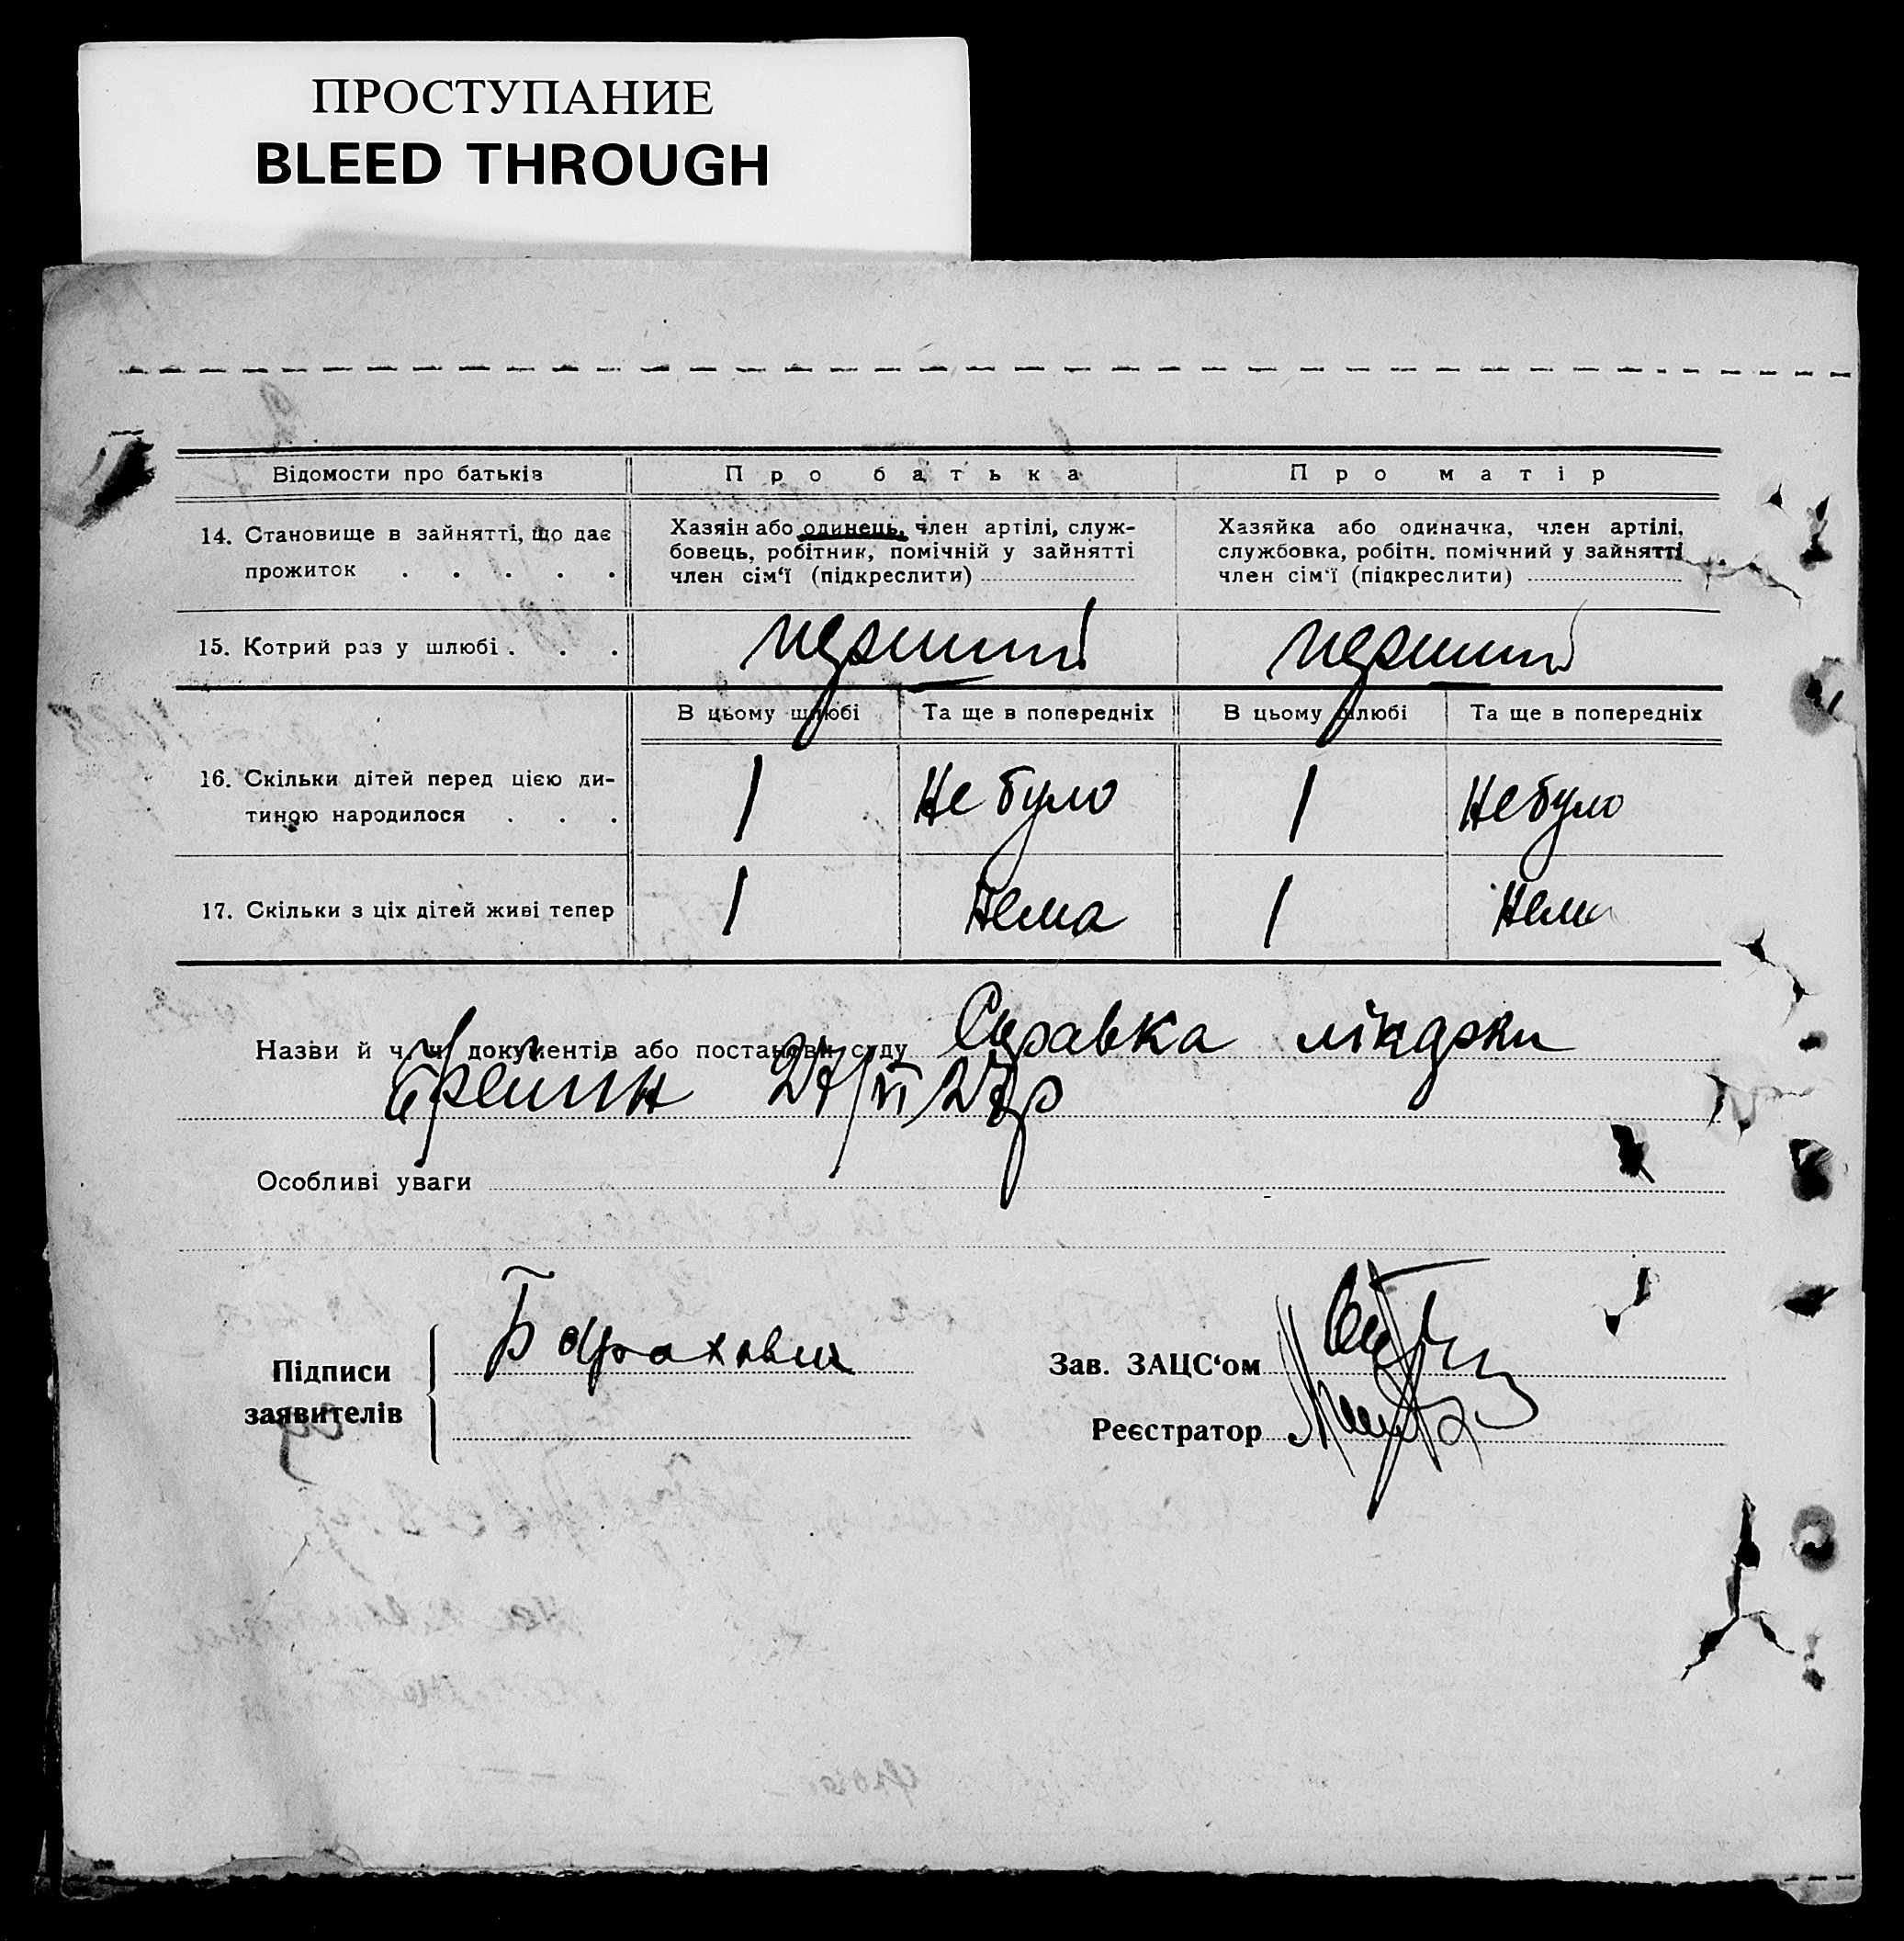 ПРОСТУПАНИЕ
BLEED THROUGH
Відомости про батьків
Про батька
Про матір
14. Становище в зайнятті, що дає
прожиток . . . . .
Хазяін або одинець, член артілі, служ-
бовець, робітник, помічній у зайнятті
член сім‘ї (підкреслити)
Хазяйка або одиначка, член артілі,
службовка, робітн. помічний у зайнятті
член сім‘ї (підкреслити)
15. Котрий раз у шлюбі . . .
перший
перший
В цьому шлюбі
Та ще в попередніх
В цьому шлюбі
Та ще в попередніх
16. Скільки дітей перед цією ди-
тиною народилося . . .
1
Не було
1
Не було
17. Скільки з ціх дітей живі тепер
1
Нема
1
Нема
Назви й ч. ч. документів або постанови суду Справка лікарки
27/VI 27р
Особливі уваги
Підписи
заявителів
Зав. ЗАЦС‘ом
Реєстратор